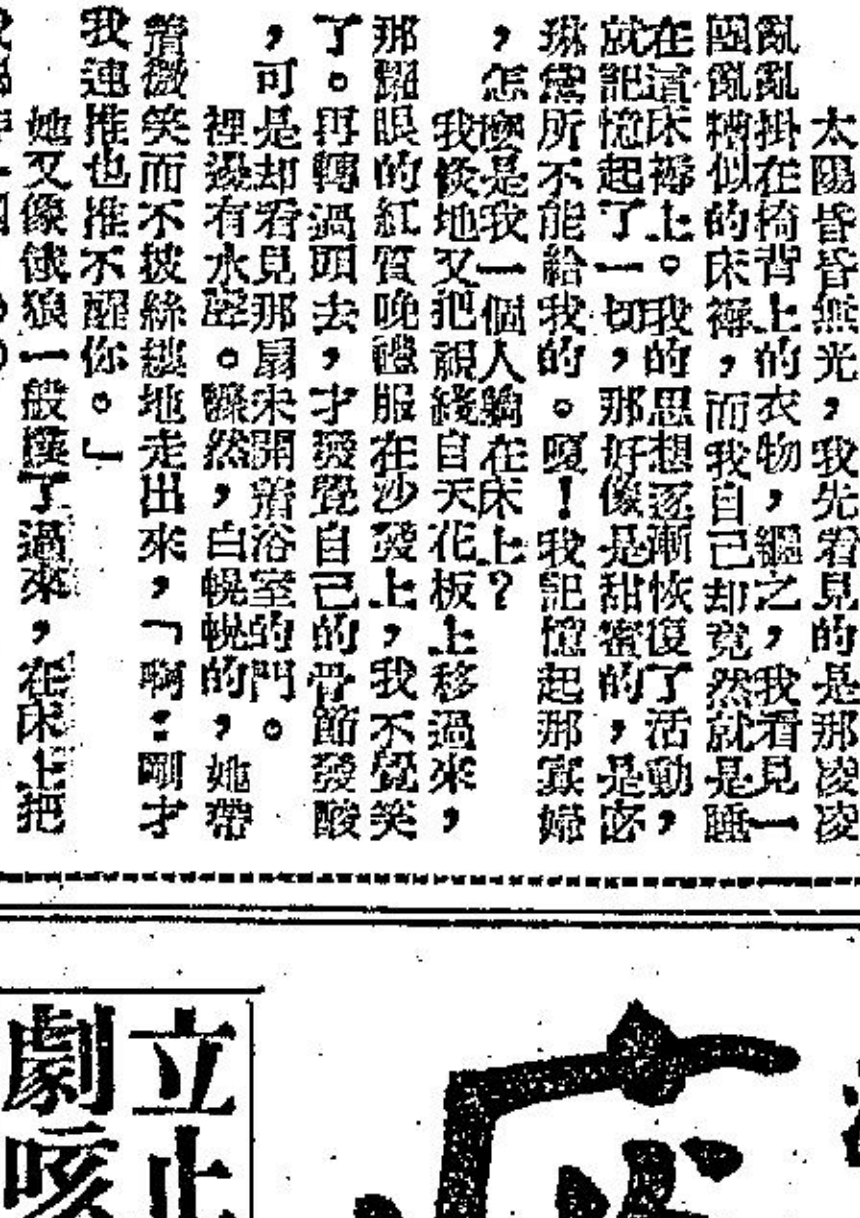 太陽昏昏無光，我先看見的是那凌凌
亂亂掛在椅背上的衣物，繼之，我看見一
團亂糟似的床褥，而我自己却竟然就是睡
在這床褥上。我的思想逐漸恢復了活動，
就記憶起了一切，那好像是甜蜜的，是
琳黛所不能給我的。嗄！我記憶起那寡婦
，怎麼是我一個人躺在床上？
我倏地又把視綫自天花板上移過來，
那眼的紅質晚禮服在沙發上，我不覺笑
了。再轉過頭去，才發覺自己的骨節發酸
，可是却看見那扇未開着浴室的門。
裡邊有水聲。驟然，白幌幌的，她帶
着微笑而不披絲縷地走出來，「啊：剛才
我連推也推不醒你。」
她又像餓狼一般撲了過來，在床上把
立止
劇咳